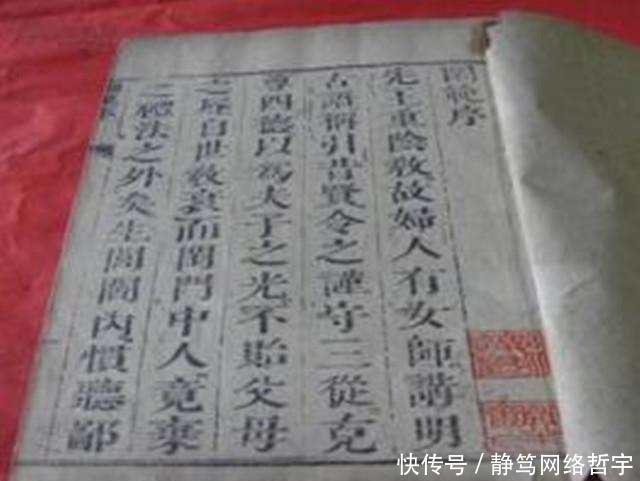 閨範序
先王重陰教故婦人有女師講明
古語稱引昔賢令之謹守三從克
尊四德以爲夫子之光不貽父母
之辱自世教衰而閨門中人竟棄
之禮法之外矣生閭閻內慣聽鄙
快传号／静笃网络哲宇